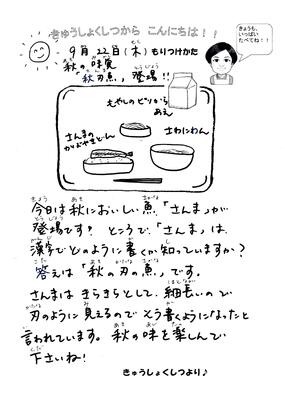 きゅうしょくしつから こんにちは！！
きょうも、
いっぱい
たべてね！！
9月22日(木)もりつけかた
秋の味覚
「秋刀魚」登場!!
もやしのピリから
あえ
さんまの
かばやきどん
さわにわん
今日は秋においしい魚「さんま」が
登場です？ ところで「さんま」は、
漢字でどのように書くか知っていますか？
答えは「秋の刀の魚」です。
さんまは きらきらとして、細長いので
刀のように見えるので そう書くようになったと
言われています。 秋の味を楽しんで
下さいね！
きゅうしょくしつより♪